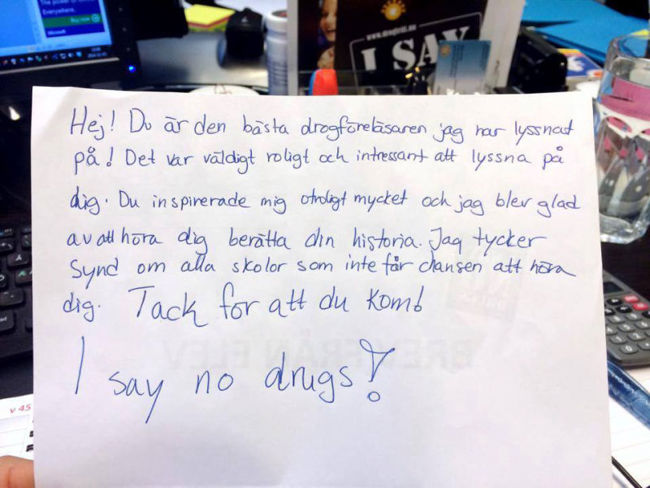 I SAY
Hej! Du är den bästa drogföreläsaren jag har lyssnat
på! Det var väldigt roligt och intressant att lyssna på
dig. Du inspirerade mig otroligt mycket och jag blev glad
av att höra dig berätta din historia. Jag tycker
synd om alla skolor som inte får chansen att höra
dig. Tack för att du kom!
I say no drugs!
BREV FRÅN ELEV
v 45